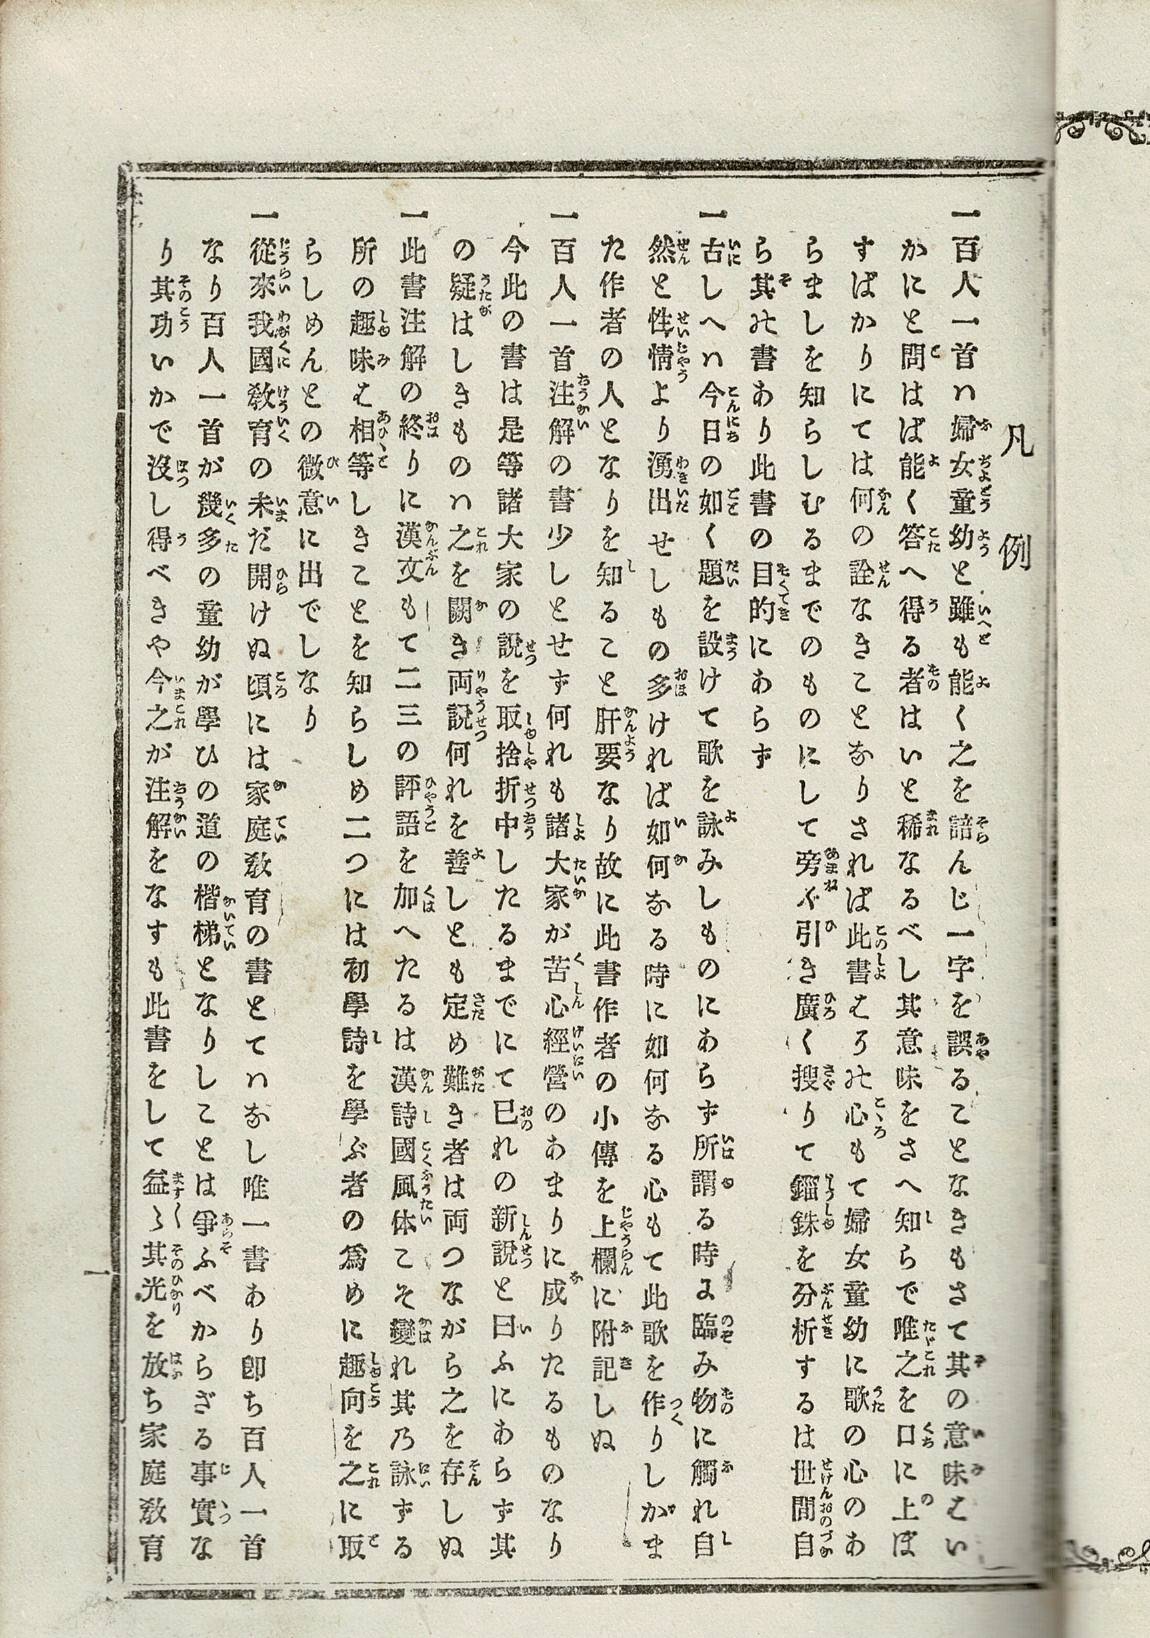 凡例
一百人一首ハ婦女童幼と雖も能く之を諳んじ一字を誤ることなきもさて其の意味はい
かにと問はば能く答へ得る者はいと稀なるべし其意味をさへ知らで唯之を口に上ぼ
すばかりにては何の詮なきことなりされば此書はろの心もて婦女童幼に歌の心のあ
らましを知らしむるまでのものにして旁ぐ引き廣く搜りて錙銖を分析するは世間自
ら其の書あり此書の目的にあらず
一古しへハ今日の如く題を設けて歌を詠みしものにあらず所謂る時に臨み物に觸れ自
然と性情より湧出せしもの多ければ如何なる時に如何なる心もて此歌を作りしかま
た作者の人となりを知ること肝要なり故に此書作者の小傳を上欄に附記しぬ
一百人一首注解の書少しとせず何れも諸大家が苦心經營のあまりに成りたるものなり
今此の書は是等諸大家の説を取捨折中したるまでにて已れの新説と曰ふにあらず其
の疑はしきものハ之を闕き両説何れを善しとも定め難き者は両つながら之を存しぬ
一此書注解の終りに漢文もて二三の評語を加へたるは漢詩國風体こそ變れ其乃詠ずる
所の趣味は相等しきことを知らしめ二つには初學詩を學ぶ者の爲めに趣向を之に取
らしめんとの微意に出でしなり
一從來我國敎育の未だ開けぬ頃には家庭敎育の書とてハなし唯一書あり卽ち百人一首
なり百人一首が幾多の童幼が學ひの道の楷梯となりしことは爭ふべからざる事實な
り其功いかで沒し得べきや今之が注解をなすも此書をして益〻其光を放ち家庭敎育
一